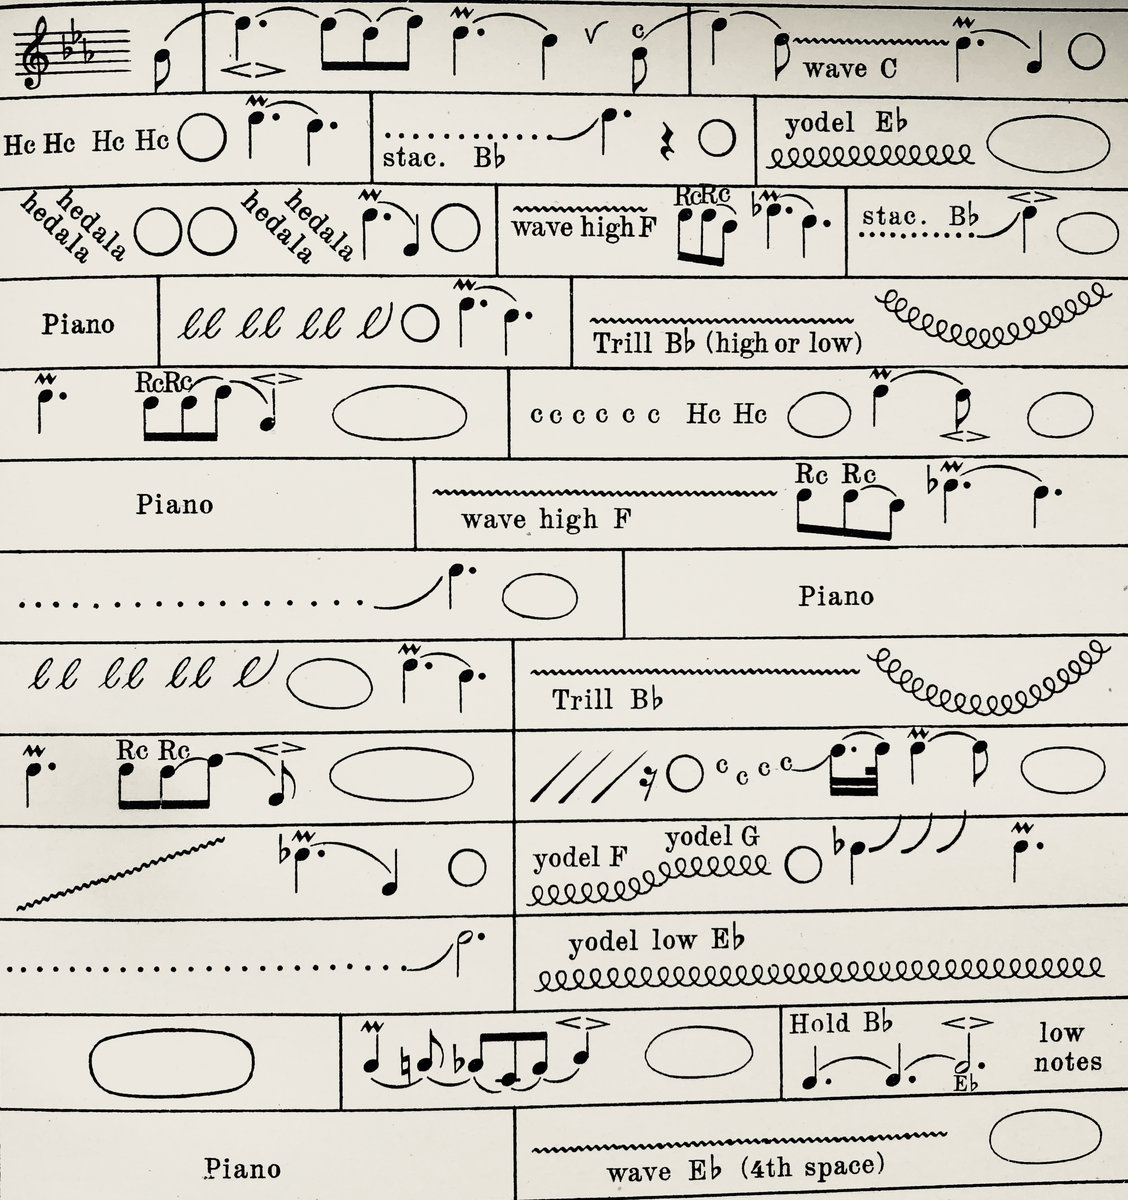 c
wave C
Hc Hc Hc Hc
stac. B♭
yodel E♭
hedala hedala
hedala hedala
wave high F
Rc Rc
stac. B♭
Piano
Trill B♭ (high or low)
Rc Rc
c c c c c c Hc Hc
Piano
wave high F
Rc Rc
Piano
Trill B♭
Rc Rc
c c c c
yodel F yodel G
yodel low E♭
Hold B♭
E♭
low
notes
Piano
wave E♭ (4th space)